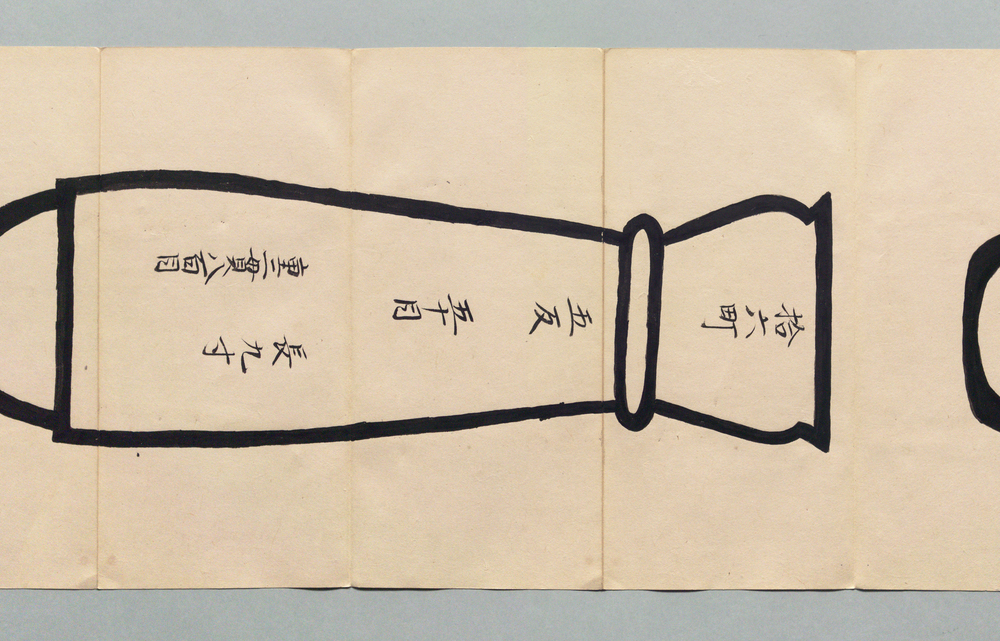 拾六町
五反
五十目
長九寸
重二貫八百目